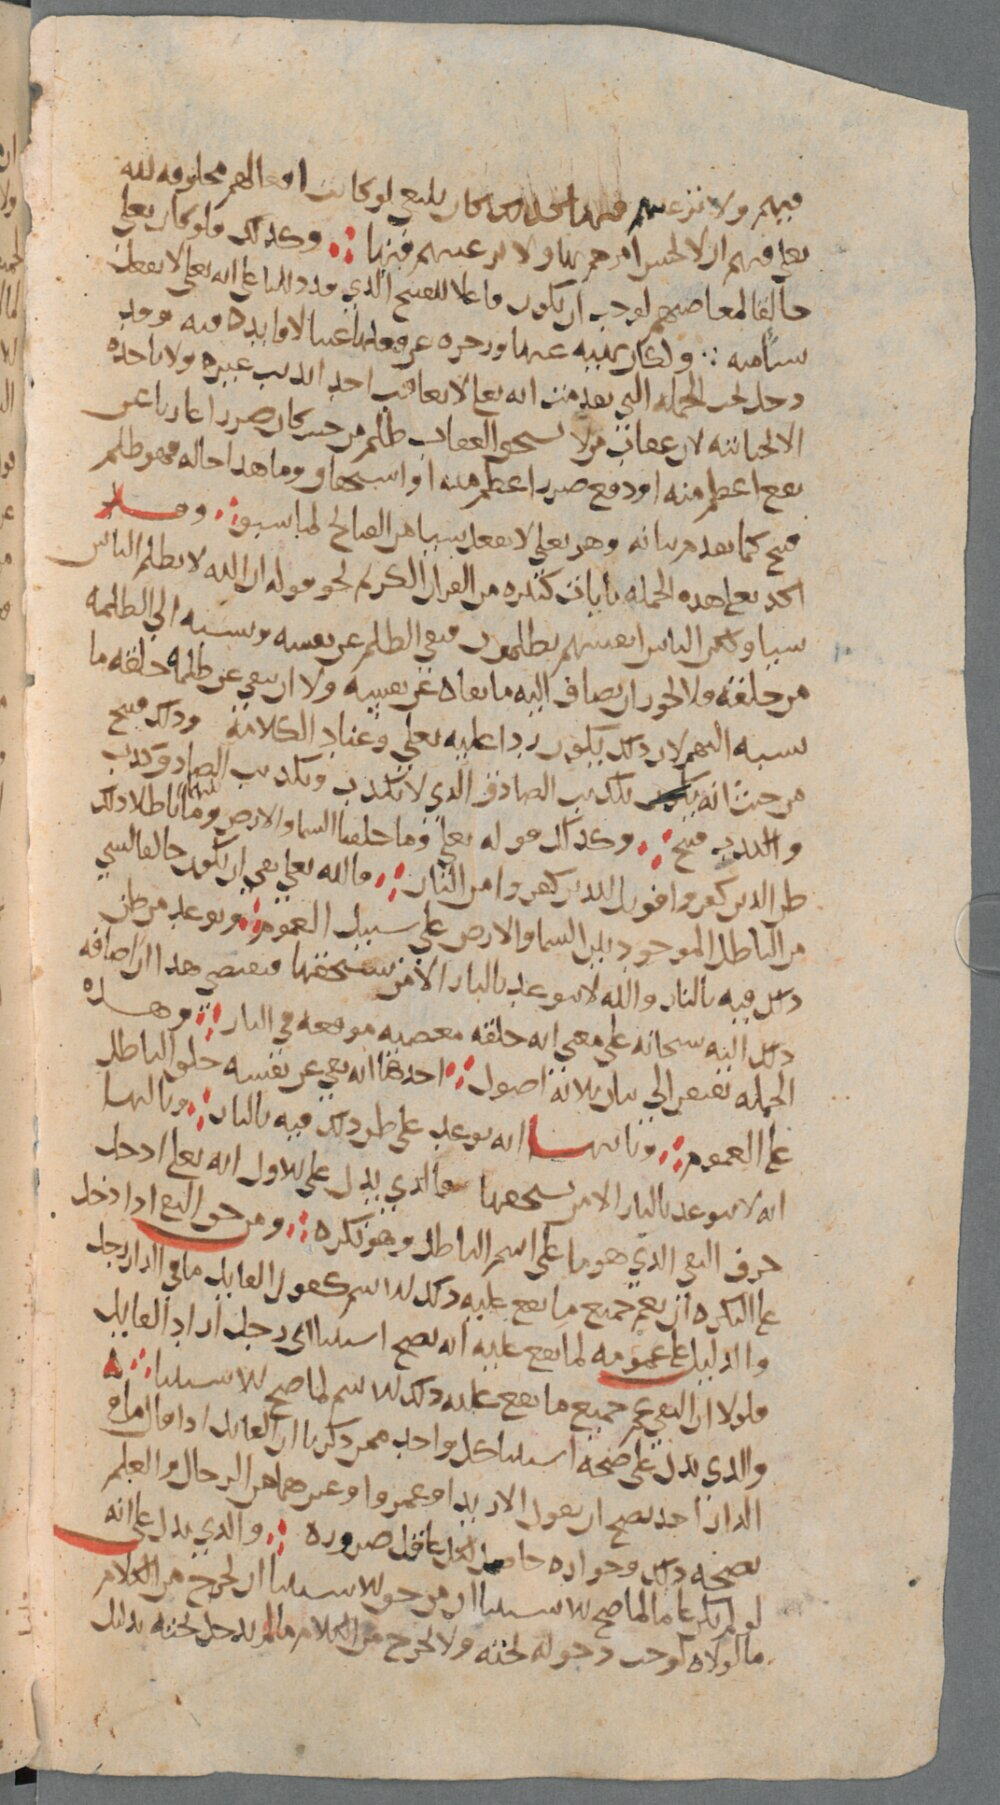 فيهم ولا نزعهم فيها كان يلبع لو كانت افعالهم مخلوقه لله
تعلى فيهم ان لا يحس امرهم بها ولا نزعهم فيها ؞ وكذلك فلو كان تعلى
خالقا لمعاصيهم لوجب ان يكون فاعلا للقبيح الذي قد دللنا على انه تعلى لا يفعل
شيا منه ؞ ولكان نهيه عنها وزجره عن فعلها عبثا لا فايده فيه وقد
دخل تحت الجمله التي تقدمت انه تعلى لا يعاقب احد الا بذنب غيره ولا ياخذه
الا بجنايته لان عقاب من لا يستحق العقاب ظلم من حيث كان ضررا عاريا عن
نفع اعظم منه او دفع ضرر اعظم منه او استحقاق وما هذا حاله فهو ظلم
قبيح كما تقدم بيانه وهو تعلى لا يفعل شيا من القبائح لما سبق ؞ وقد
اكد تعلى هذه الجمله بايات كثيره من القران الكريم نحو قوله ان الله لا يظلم الناس
شيا ولكن الناس انفسهم يظلمون فنفى الظلم عن نفسه ونسبه الى الظلمه
من خلقه فلا يجوز ان يضاف اليه ما نفاه عن نفسه ولا ان ينفى عن ظلمة خلقه ما
نسبه اليهم لان ذلك يكون ردا عليه تعلى وعنادا لكلامه وذلك قبيح
من حيث انه تكذيب الصادق الذي لا يكذب وتكذيب الصادق كذب
والكذب قبيح ؞ وكذلك قوله تعلى وما خلقنا السما والارض وما بينهما باطلا ذلك
ظن الذين كفروا فويل للذين كفروا من النار ؞ فالله تعلى نفى ان يكون خالقا لشي
من الباطل الموجود بين السما والارض على سبيل العموم ؞ وتوعد من ظن
ذلك فيه بالنار والله لا يتوعد بالنار الا من يستحقها فيقتضي هذا ان اضافه
ذلك اليه سبحانه على معنى انه خلقه معصيه موقعه في النار ؞ وهذه
الجمله تفتقر الى بيان ثلاثه اصول ؞ احدها انه نفى عن نفسه خلق الباطل
على العموم ؞ وثانيها انه توعد على ظن ذلك فيه بالنار ؞ وثالثها
انه لا يتوعد بالنار الا من يستحقها فالذي يدل على الاول انه تعلى ادخل
حرف النفي الذي هو ما على اسم الباطل وهو نكره ؞ ومن حق النفي اذا دخل
على النكره ان يعم جميع ما يقع عليه ذلك الاسم كقول القايل ما في الدار رجل
والدليل على عمومه لما يقع عليه انه يصح استثنا اي رجل اراد القايل
فلولا ان النفي عم جميع ما يقع عليه ذلك الاسم لما صح الاستثنا ؞ ه
والذي يدل على صحة استثنا كل واحد ممن ذكرنا ان القايل اذا قال ما في
الدار احد يصح ان يقول الا زيدا وعمروا وغيرهما من الرجال والعلم
بصحة ذلك وجوازه حاصل لكل عاقل ضروره ؞ والذي يدل على انه
لو لم يكن عاما لما صح الاستثنا ان من حق الاستثنا ان يخرج من الكلام
ما لولاه لوجب دخوله تحته ولا يخرج من الكلام ما لم يدخل تحته بدليل